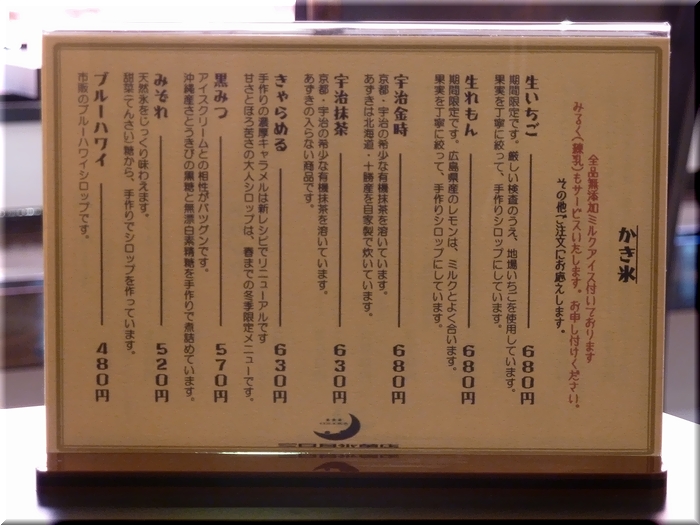 かき氷
全品無添加ミルクアイス付いております
みるく(練乳)もサービスいたします。お申し付けください。
その他ご注文にお応えします。
生いちご 680円
期間限定です。厳しい検査のうえ、地場いちごを使用しています。
果実を丁寧に絞って、手作りシロップにしています。
生れもん 680円
期間限定です。広島県産のレモンは、ミルクとよく合います。
果実を丁寧に絞って、手作りシロップにしています。
宇治金時 680円
京都・宇治の希少な有機抹茶を溶いています。
あずきは北海道・十勝産を自家製で炊いています。
宇治抹茶 630円
京都・宇治の希少な有機抹茶を溶いています。
あずきの入らない商品です。
きゃらめる 630円
手作りの濃厚キャラメルは新レシピでリニューアルです
甘さとほろ苦さの大人シロップは、春までの冬季限定メニューです。
黒みつ 570円
アイスクリームとの相性がバツグンです。
沖縄産さとうきびの黒糖と無漂白素精糖を手作りで煮詰めています。
みぞれ 520円
天然氷をじっくり味わえます。
甜菜(てんさい)糖から、手作りでシロップを作っています。
ブルーハワイ 480円
市販のブルーハワイシロップです。
三日月氷菓店